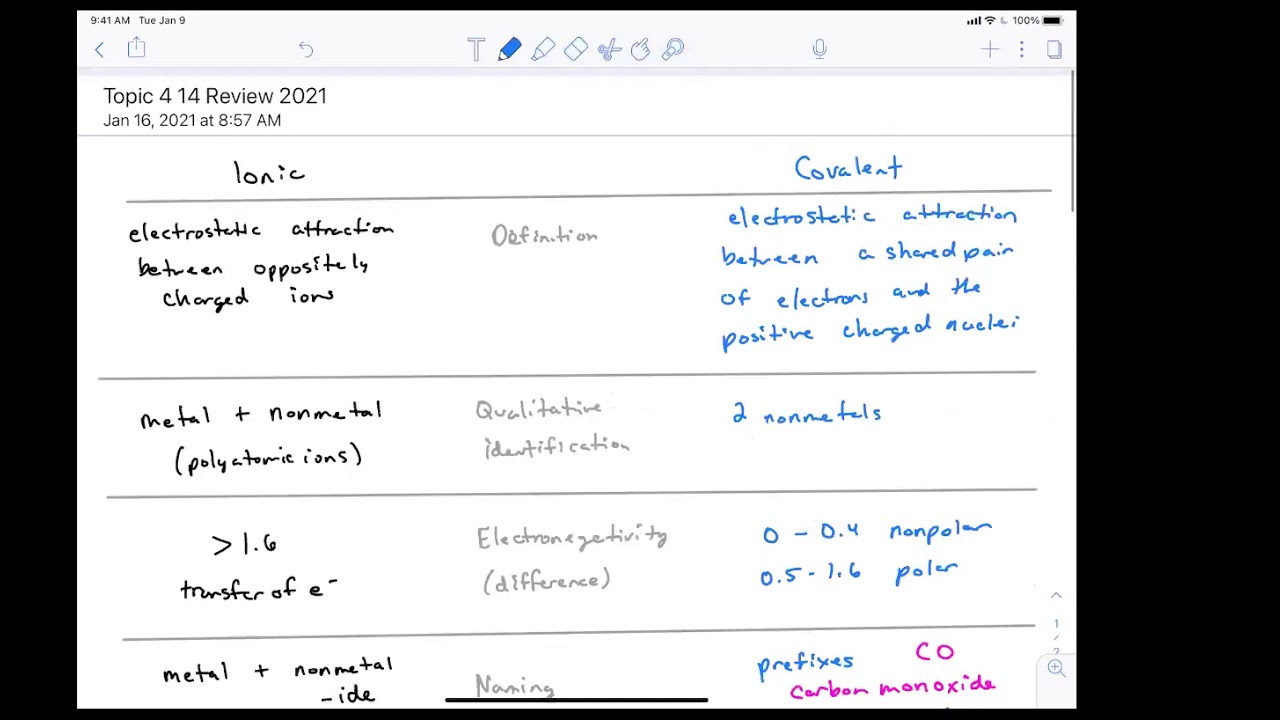 9:41 AM Tue Jan 9
100%
T
Topic 4 14 Review 2021
Jan 16, 2021 at 8:57 AM
Ionic
Covalent
electrostatic attraction
between oppositely
charged ions
Definition
electrostatic attraction
between a shared pair
of electrons and the
positive charged nuclei
metal + nonmetal
(polyatomic ions)
Qualitative
identification
2 nonmetals
>1.6
transfer of e⁻
Electronegetivity
(difference)
0 - 0.4 nonpolar
0.5 - 1.6 polar
metal + nonmetal
-ide
Naming
prefixes CO
carbon monoxide
1
/
2